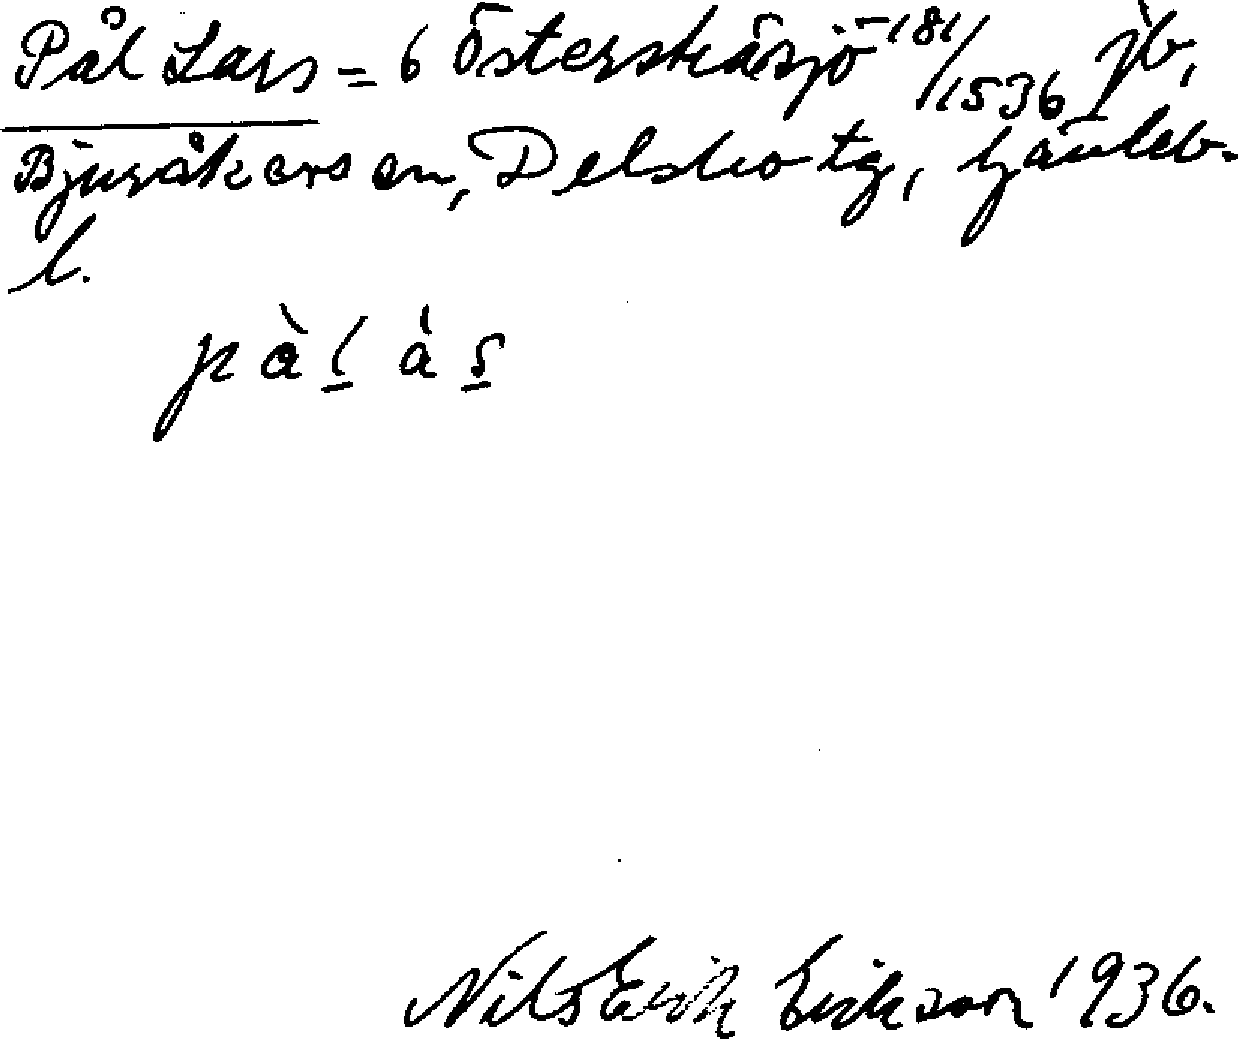 Pål Lars = 6 Österskärsjö 181/1536 jb,
Bjuråkers sn, Delsbo tg, Gävleb.
l.
pàlás
Nils Erik Erikson 1936.